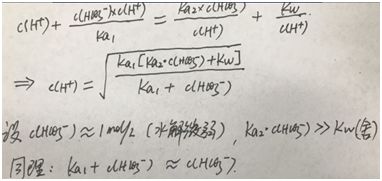 c(H⁺) + c(HCO₃⁻)×c(H⁺) / Ka₁ = Ka₂×c(HCO₃⁻) / c(H⁺) + Kw / c(H⁺).
⇒ c(H⁺) = √(Ka₁[Ka₂·c(HCO₃⁻)+Kw] / Ka₁ + c(HCO₃⁻))
设 c(HCO₃⁻) ≈ 1mol/L (水解微弱), Ka₂·c(HCO₃⁻) >> Kw(舍)
同理: Ka₁ + c(HCO₃⁻) ≈ c(HCO₃⁻).